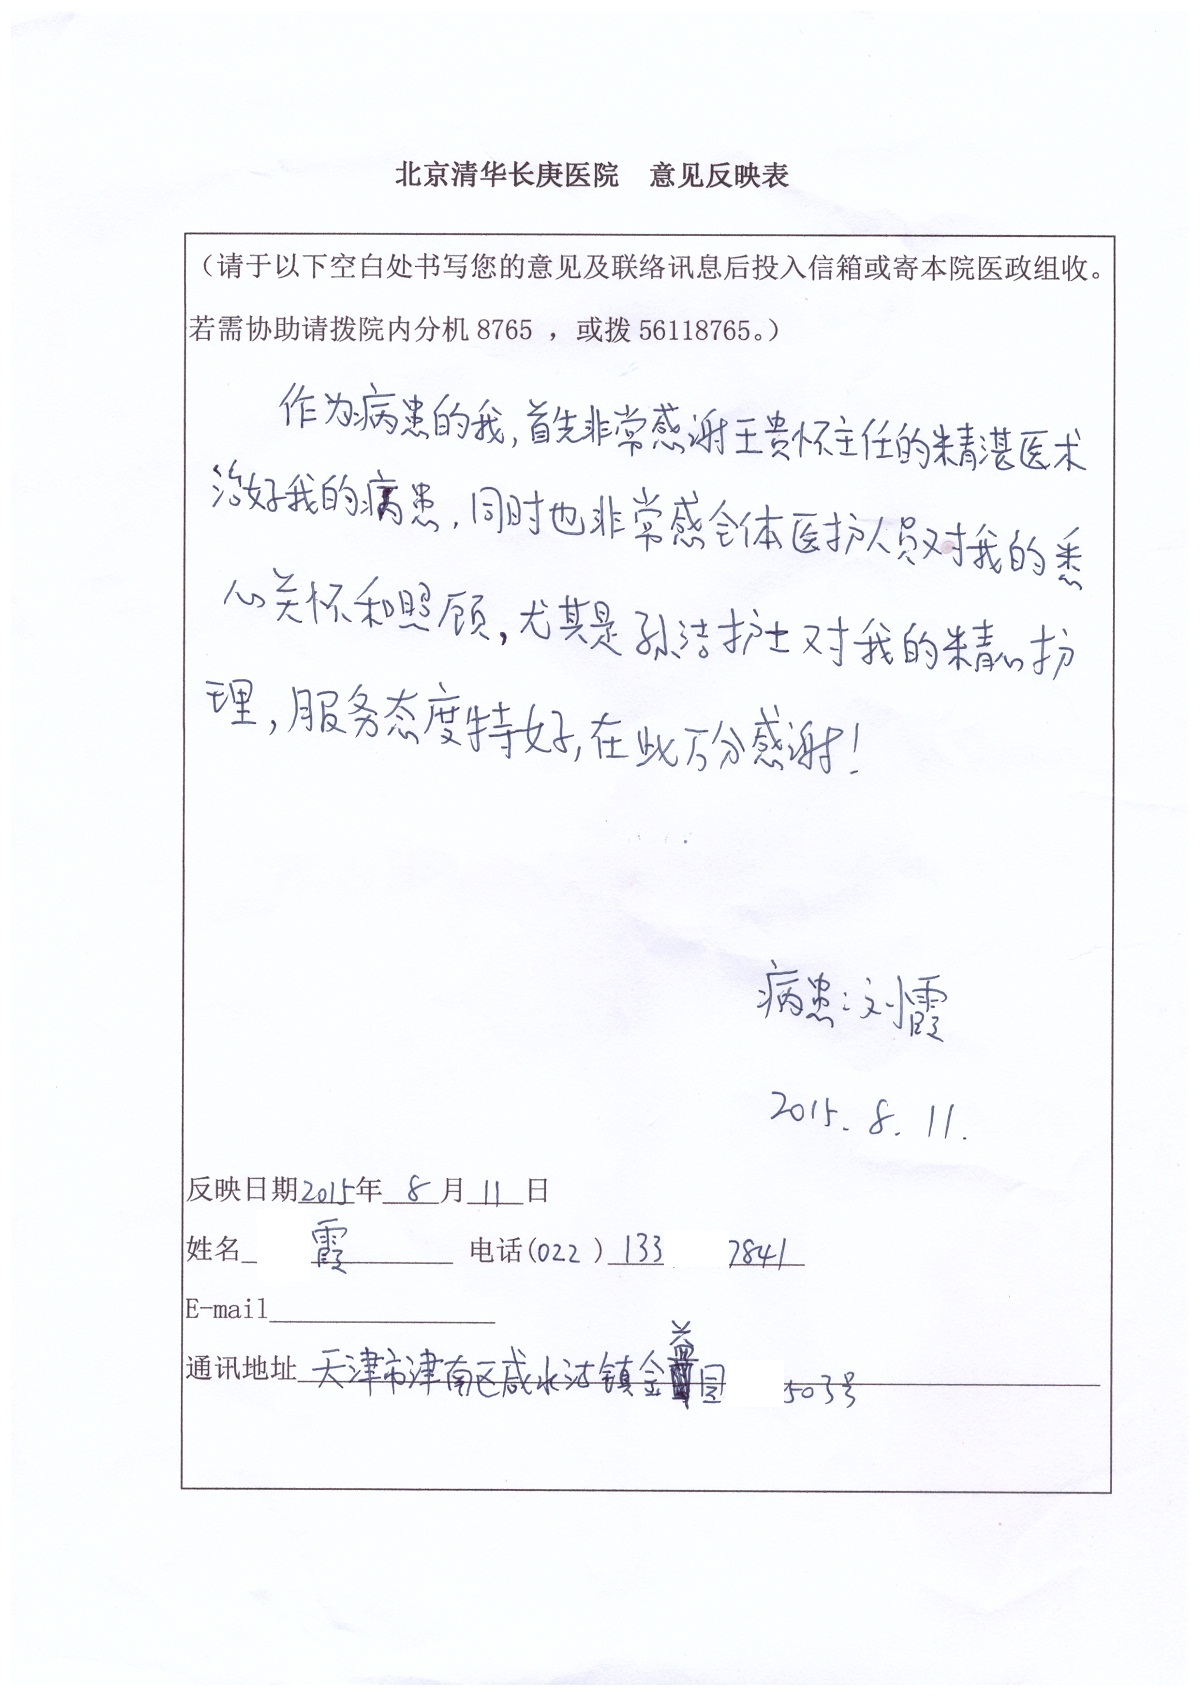 北京清华长庚医院 意见反映表
（请于以下空白处书写您的意见及联络讯息后投入信箱或寄本院医政组收。
若需协助请拨院内分机8765 ，或拨56118765。）
作为病患的我，首先非常感谢王贵怀主任的精湛医术
治好我的病患，同时也非常感全体医护人员对我的悉
心关怀和照顾，尤其是孙洁护士对我的精心护
理，服务态度特好，在此万分感谢！
病患：刘霞
2015.8.11.
反映日期2015年 8 月 11 日
姓名 霞 电话(022 ) 133 7841
E-mail
通讯地址 天津市津南区咸水沽镇金益园 503号